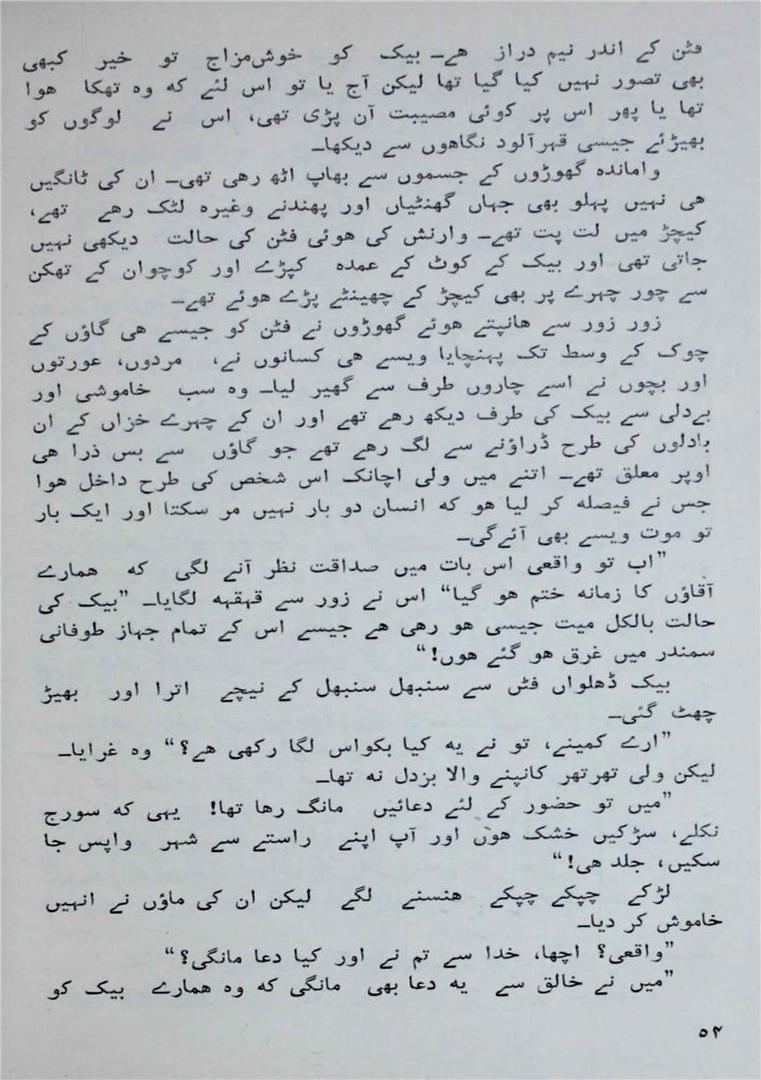 فٹن کے اندر نیم دراز ھے۔ بیک کو خوش‌مزاج تو خیر کبھی
بھی تصور نہیں کیا گیا تھا لیکن آج یا تو اس لئے که وہ تھکا ھوا
تھا یا پھر اس پر کوئی مصیبت آن پڑی تھی، اس نے لوگوں کو
بھیڑئے جیسی قہرآلود نگاھوں سے دیکھا۔
واماندہ گھوڑوں کے جسموں سے بھاپ اٹھ رھی تھی۔ ان کی ٹانگیں
ھی نہیں پہلو بھی جہاں گھنٹیاں اور پھندنے وغیرہ لٹک رھے تھے،
کیچڑ میں لت پت تھے۔ وارنش کی ھوئی فٹن کی حالت دیکھی نہیں
جاتی تھی اور بیک کے کوٹ کے عمدہ کپڑے اور کوچوان کے تھکن
سے چور چہرے پر بھی کیچڑ کے چھینٹے پڑے ھوئے تھے۔
زور زور سے ھانپتے ھوئے گھوڑوں نے فٹن کو جیسے ھی گاؤں کے
چوک کے وسط تک پہنچایا ویسے ھی کسانوں نے، مردوں، عورتوں
اور بچوں نے اسے چاروں طرف سے گھیر لیا۔ وہ سب خاموشی اور
بے‌دلی سے بیک کی طرف دیکھ رھے تھے اور ان کے چہرے خزاں کے ان
بادلوں کی طرح ڈراؤنے سے لگ رھے تھے جو گاؤں سے بس ذرا ھی
اوپر معلق تھے۔ اتنے میں ولی اچانک اس شخص کی طرح داخل ھوا
جس نے فیصله کر لیا ھو که انسان دو بار نہیں مر سکتا اور ایک بار
تو موت ویسے بھی آئے‌گی۔
”اب تو واقعی اس بات میں صداقت نظر آنے لگی که ھمارے
آقاؤں کا زمانه ختم ھو گیا“ اس نے زور سے قہقہه لگایا۔ ”بیک کی
حالت بالکل میت جیسی ھو رھی ھے جیسے اس کے تمام جہاز طوفانی
سمندر میں غرق ھو گئے ھوں!“
بیک ڈھلواں فٹن سے سنبھل سنبھل کے نیچے اترا اور بھیڑ
چھٹ گئی۔
”ارے کمینے، تو نے یه کیا بکواس لگا رکھی ھے؟“ وہ غرایا۔
لیکن ولی تھرتھر کانپنے والا بزدل نه تھا۔
”میں تو حضور کے لئے دعائیں مانگ رھا تھا! یہی که سورج
نکلے، سڑکیں خشک ھوں اور آپ اپنے راستے سے شہر واپس جا
سکیں، جلد ھی!“
لڑکے چپکے چپکے ھنسنے لگے لیکن ان کی ماؤں نے انہیں
خاموش کر دیا۔
”واقعی؟ اچھا، خدا سے تم نے اور کیا دعا مانگی؟“
”میں نے خالق سے یه دعا بھی مانگی که وہ ھمارے بیک کو
۵۲